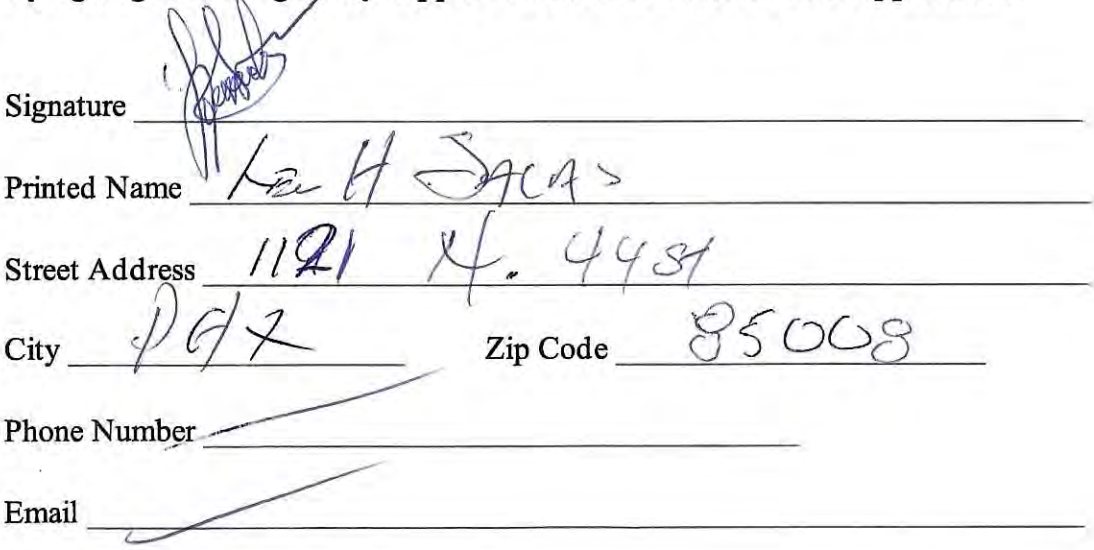 Signature
Printed Name H
Street Address 1121 N. 44 St
City PHX Zip Code 85008
Phone Number
Email